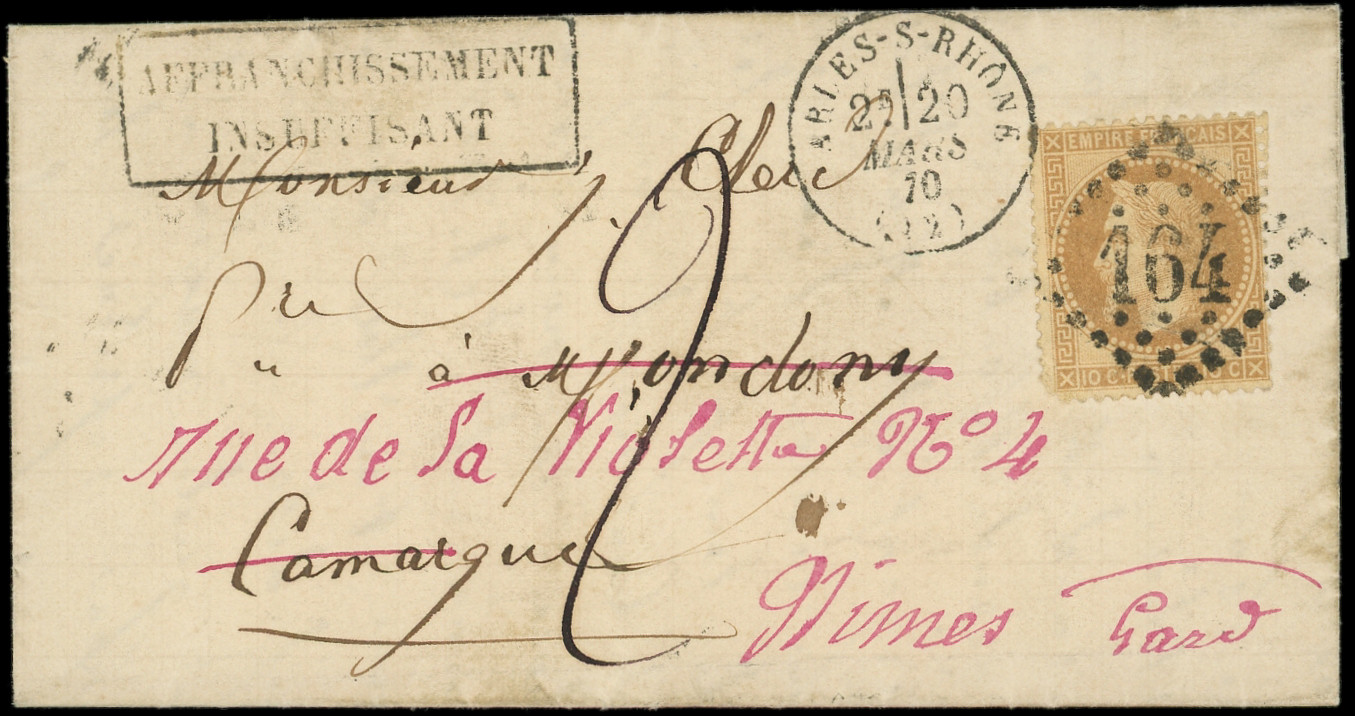 AFFRANCHISSEMENT
INSUFFISANT
ARLES-S-RHÔNE
2E 20
MARS
70
(12)
EMPIRE FRANÇAIS
164
10 C
C
Monsieur Clerc
à Mondony
Rue de la Violette No 4
Camargue
2
Nimes Gard